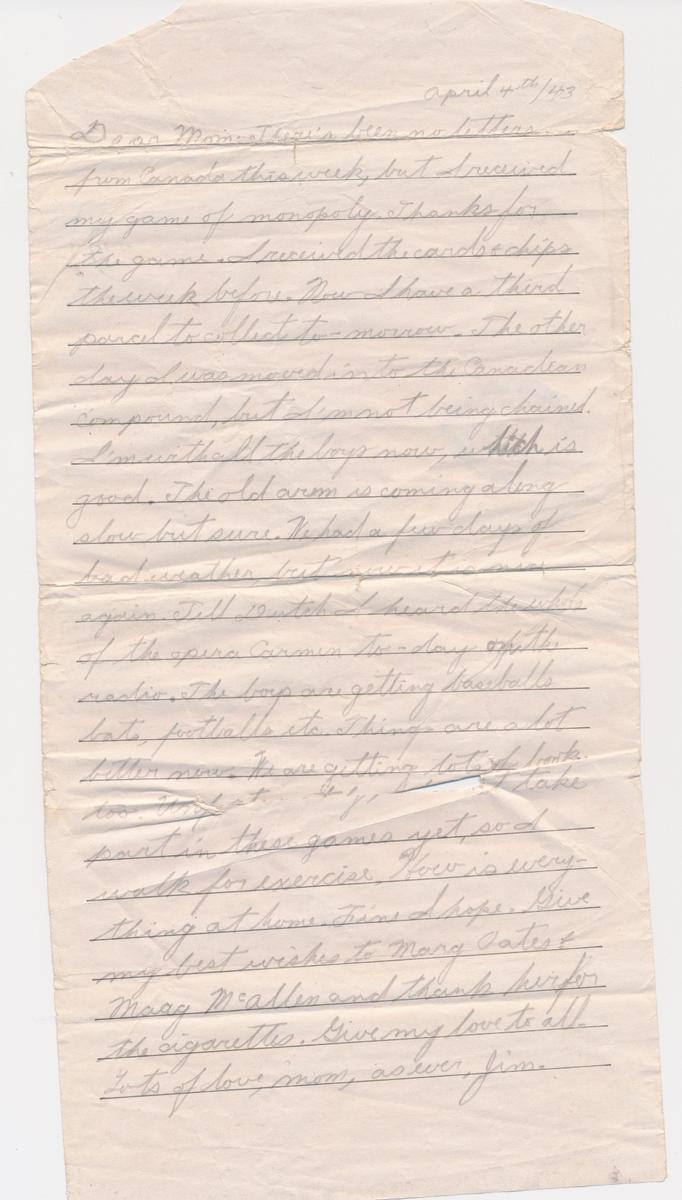 April 4th/43
Dear Mom:-There's been no letters
from Canada this week, but I received
my game of monopoly. Thanks for
the game. I received the cards & chips
the week before. Now I have a third
parcel to collect to-morrow. The other
day I was moved into the Canadean
compound, but I'm not being chained.
I'm with all the boys now, which is
good. The old arm is coming along
slow but sure. We had a few days of
bad weather, but now it is nice
again. Tell Dutch I heard the whole
of the opera Carmen to-day on the
radio. The boys are getting baseballs
bats, footballs etc. Things are a lot
better now. We are getting lots of book
too. take
part in these games yet, so I
walk for exercise. How is every-
thing at home. Fine I hope. Give
my best wishes to Marg Oates &
Maag McAllen and thank her for
the cigarettes. Give my love to all
Lots of love, mom, as ever, Jim.